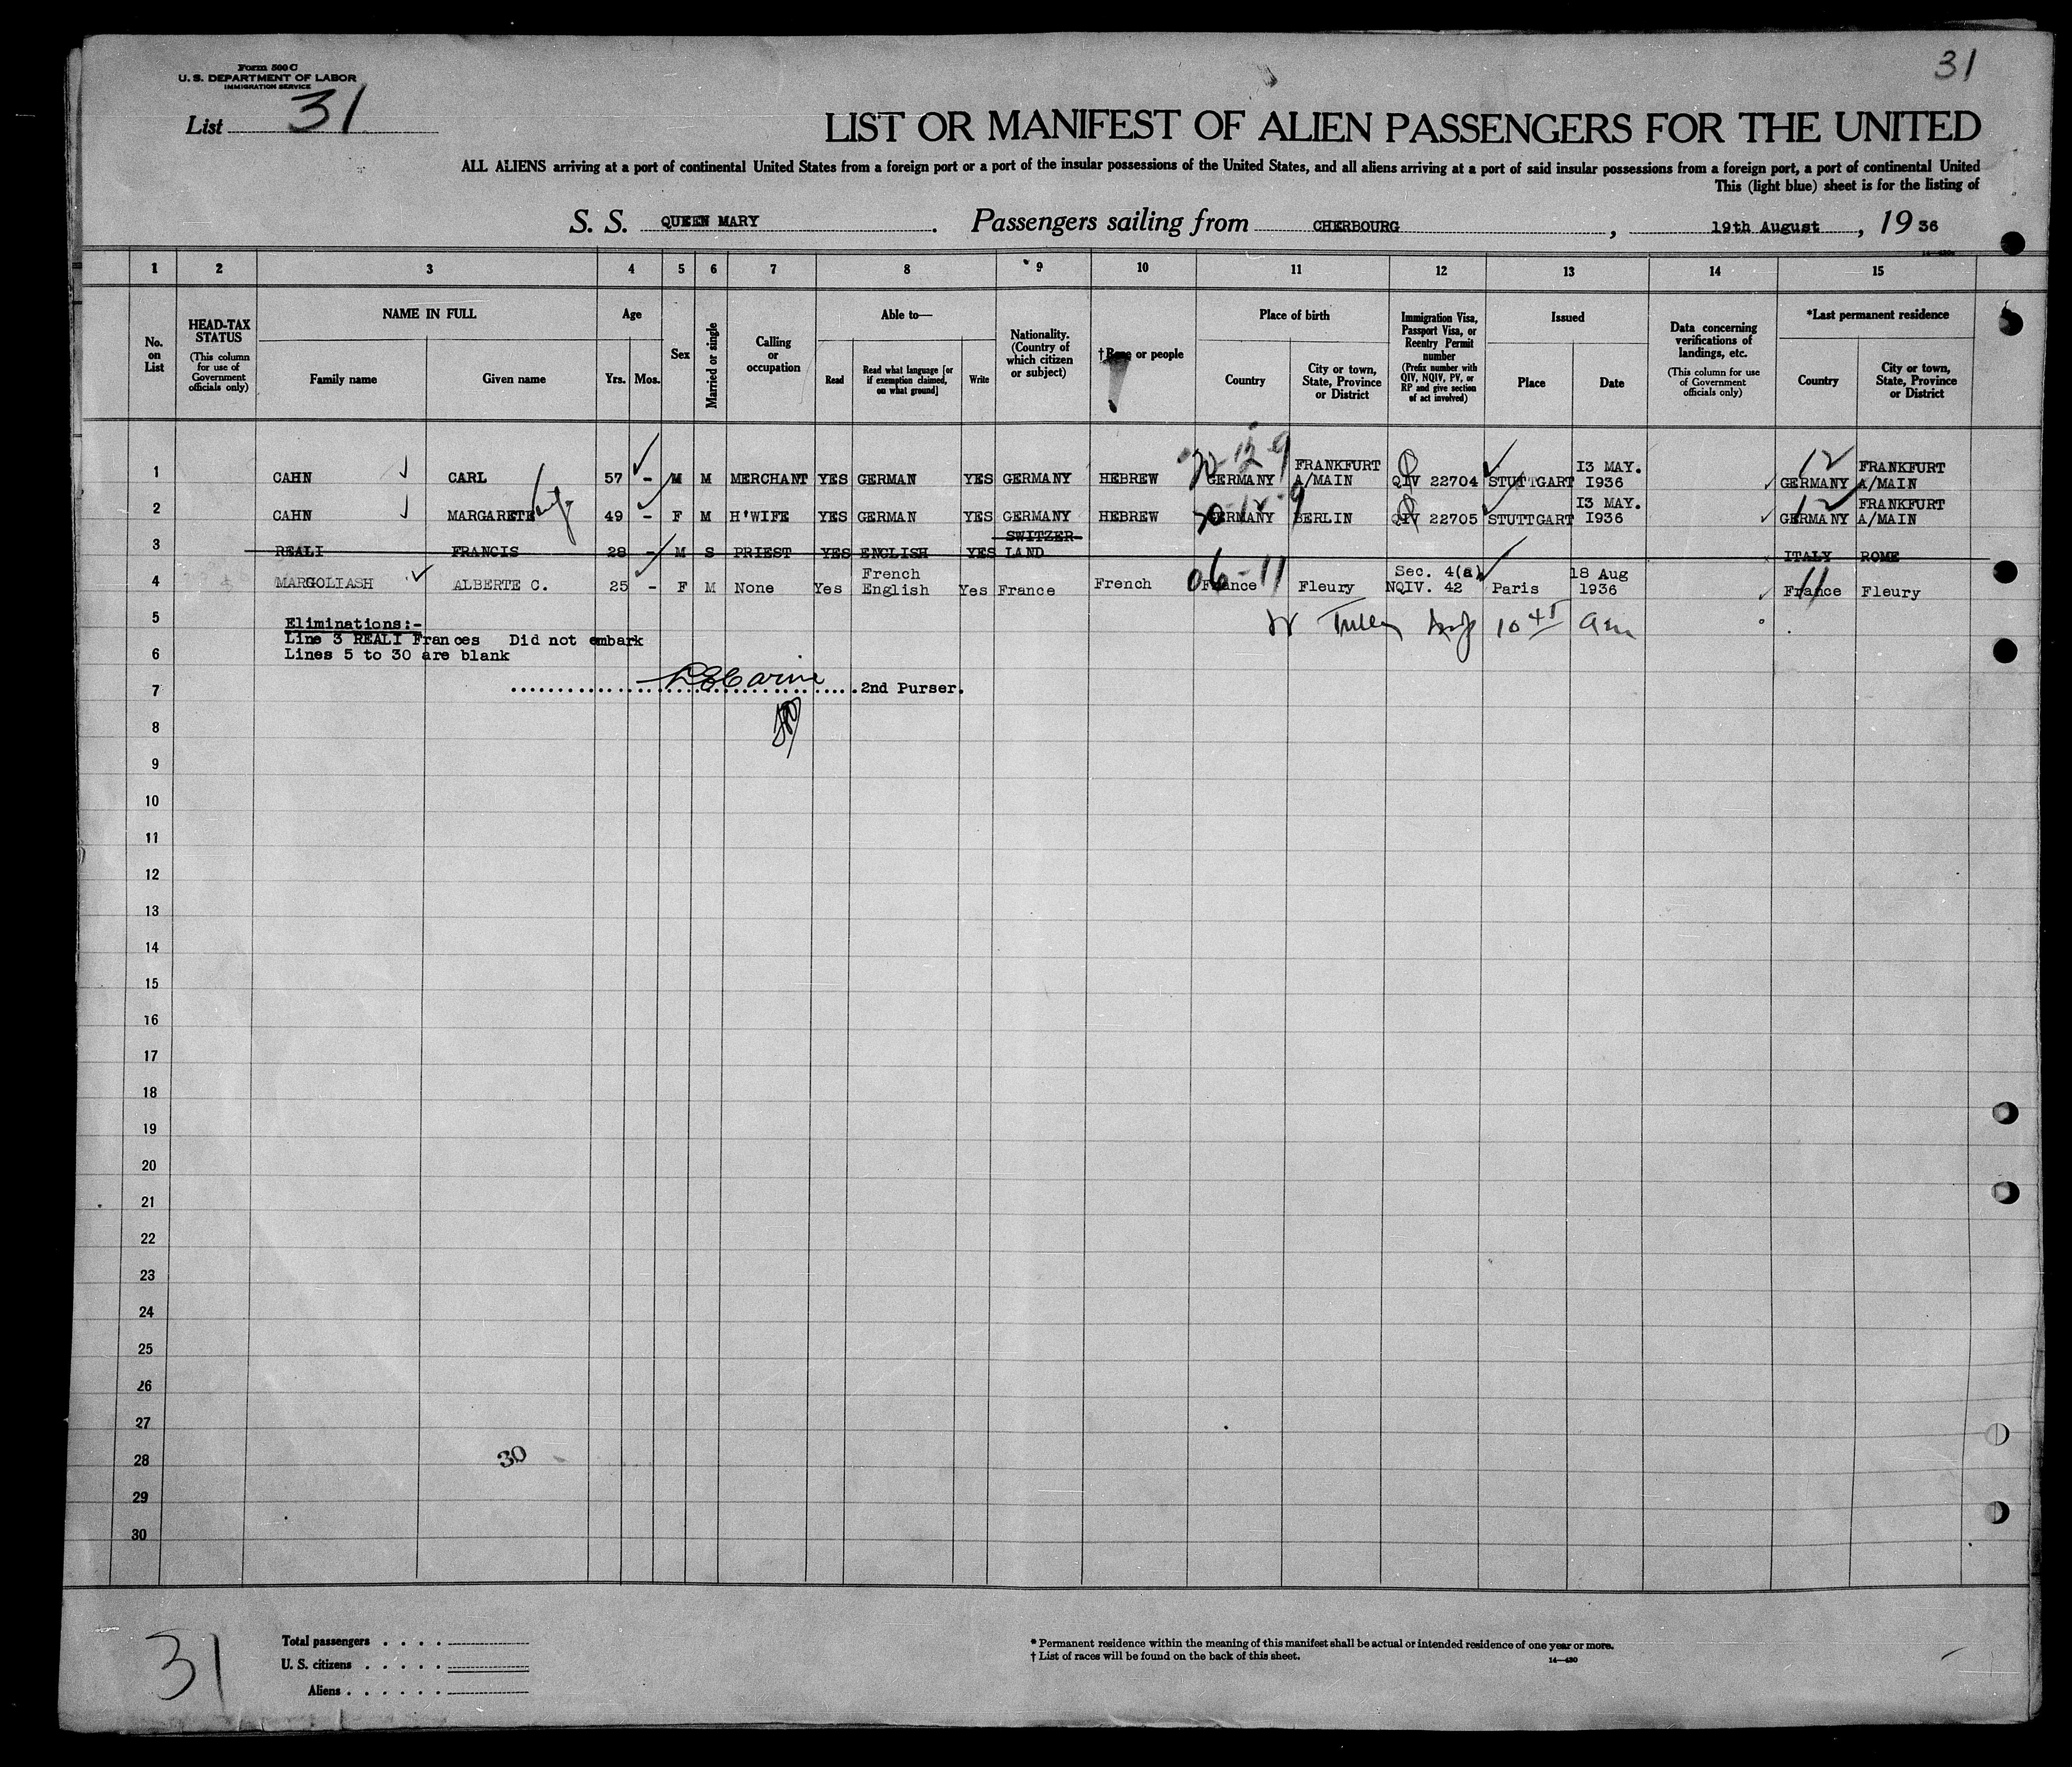 31
Form 500 C
U. S. DEPARTMENT OF LABOR
IMMIGRATION SERVICE
List 31
LIST OR MANIFEST OF ALIEN PASSENGERS FOR THE UNITED
ALL ALIENS arriving at a port of continental United States from a foreign port or a port of the insular possessions of the United States, and all aliens arriving at a port of said insular possessions from a foreign port, a port of continental United
This (light blue) sheet is for the listing of
S. S. QUEEN MARY. Passengers sailing from CHERBOURG, 19th August, 1936
1 2 3 4 5 6 7 8 9 10 11 12 13 14 15
No. on List
HEAD-TAX STATUS
(This column for use of Government officials only)
NAME IN FULL
Family name
Given name
Age
Yrs.
Mos.
Sex
Married or single
Calling or occupation
Able to—
Read
Read what language [or if exemption claimed, on what ground]
Write
Nationality. (Country of which citizen or subject)
†Race or people
Place of birth
Country
City or town, State, Province or District
Immigration Visa, Passport Visa, or Reentry Permit number
(Prefix number with QIV, NQIV, PV, or RP and give section of act involved)
Issued
Place
Date
Data concerning verifications of landings, etc.
(This column for use of Government officials only)
*Last permanent residence
Country
City or town, State, Province or District
1 CAHN CARL 57 - M M MERCHANT YES GERMAN YES GERMANY HEBREW GERMANY FRANKFURT A/MAIN QIV 22704 STUTTGART I3 MAY. I936 12 GERMANY FRANKFURT A/MAIN
2 CAHN MARGARETE 49 - F M H'WIFE YES GERMAN YES GERMANY HEBREW GERMANY BERLIN QIV 22705 STUTTGART I3 MAY. I936 12 GERMANY FRANKFURT A/MAIN
3 REALI FRANCIS 28 - M S PRIEST YES ENGLISH YES SWITZER-LAND ITALY ROME
4 MARGOLIASH ALBERTE C. 25 - F M None Yes French English Yes France French 06-11 France Fleury Sec. 4(a) NQIV. 42 Paris 18 Aug 1936 11 France Fleury
5 Eliminations:-
Line 3 REALI Frances Did not embark
6 Lines 5 to 30 are blank
7 2nd Purser.
8
9
10
11
12
13
14
15
16
17
18
19
20
21
22
23
24
25
26
27
28 30
29
30
31
Total passengers
U. S. citizens
Aliens
* Permanent residence within the meaning of this manifest shall be actual or intended residence of one year or more.
† List of races will be found on the back of this sheet.
14—430